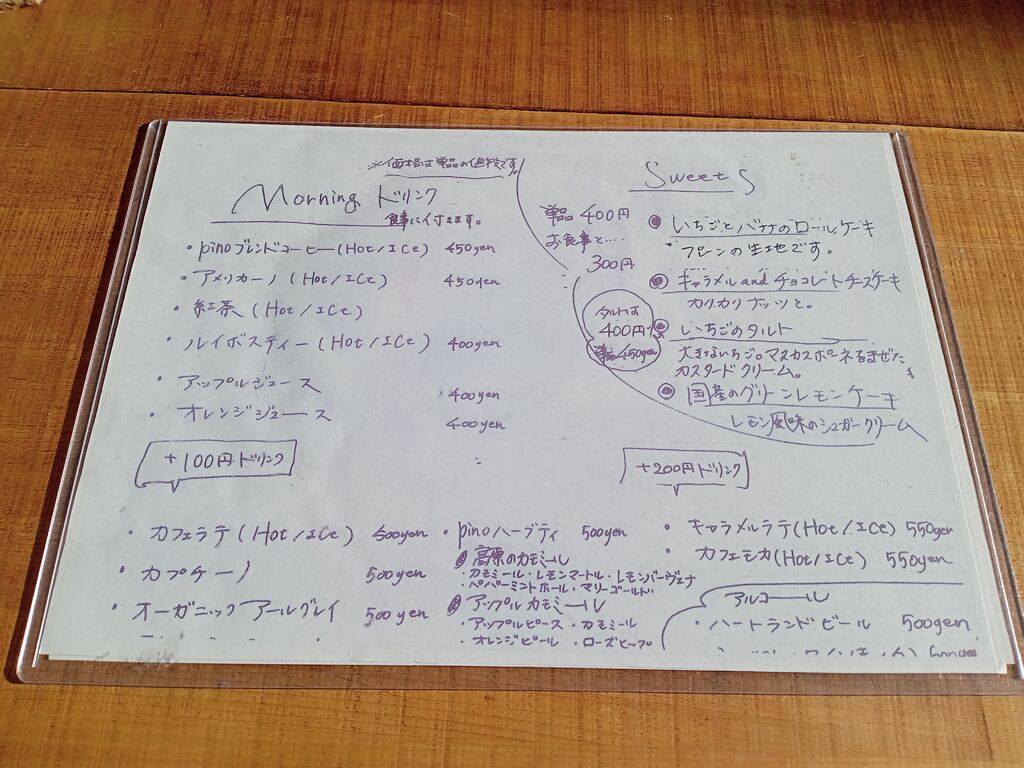 ※価格は単品の値段です。
Morning ドリンク
食事に付きます。
・pinoブレンドコーヒー(Hot/ICe) 450yen
・アメリカーノ(Hot/ICe) 450yen
・紅茶(Hot/ICe)
・ルイボスティー(Hot/ICe) 400yen
・アップルジュース 400yen
・オレンジジュース 400yen
Sweets
単品 400円
お食事と....
300円
◉いちごとバナナのロールケーキ
プレーンの生地です。
◉キャラメル and チョコレートチーズケーキ
カリカリナッツと。
タルトは
400円
単品450yen
◉いちごのタルト
大きないちご。マスカルポーネをまぜた
カスタードクリーム。
◉国産のグリーンレモンケーキ
レモン風味のシュガークリーム
+100円ドリンク
・カフェラテ(Hot/ICe) 500yen
・カプチーノ 500yen
・オーガニックアールグレイ 500yen
・pinoハーブティ 500yen
高原のカモミール
・カモミール・レモンマートル・レモンバーヴェナ
・ペパーミントホール・マリーゴールド
アップルカモミール
・アップルピース・カモミール
・オレンジピール・ローズヒップ
+200円ドリンク
・キャラメルラテ(Hot/ICe) 550yen
・カフェモカ(Hot/ICe) 550yen
アルコール
・ハートランドビール 500yen